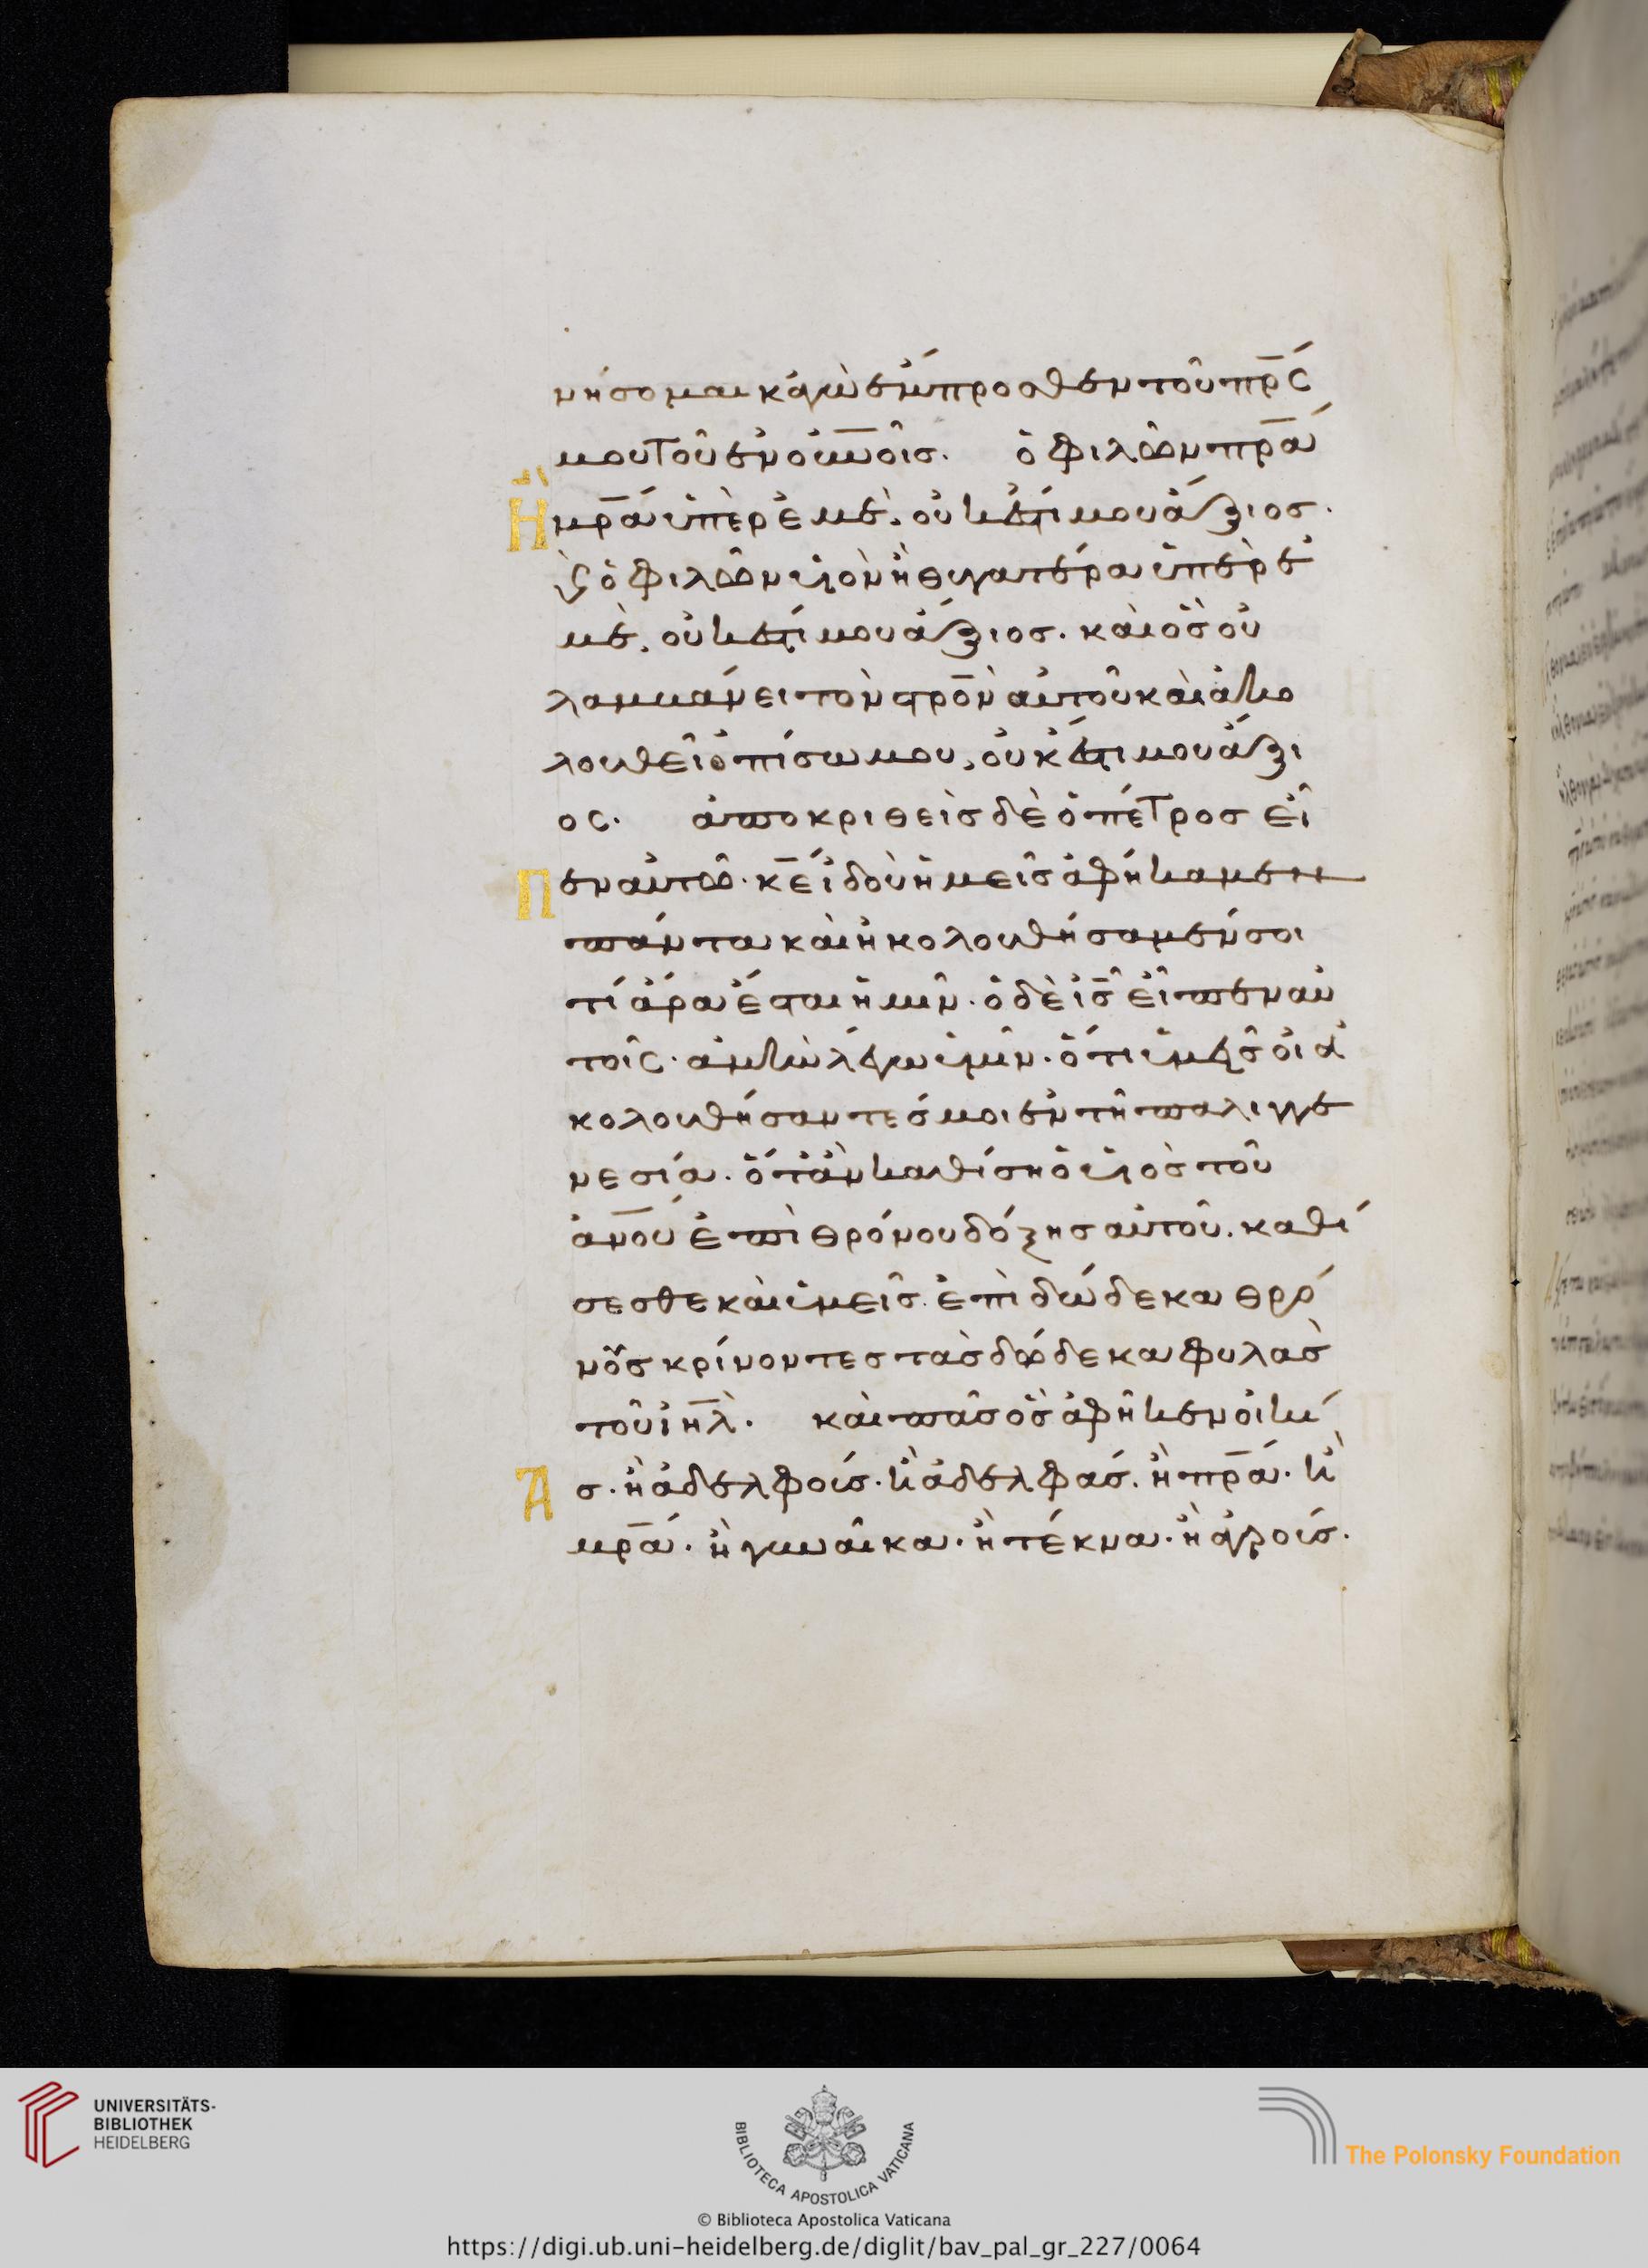 νήσομαι κἀγὼ ἔμπροσθεν τοῦ πρ̅ς
μου τοῦ ἐν οὐνο̅ις. ὁ φιλῶν πρ̅α
Ἢ μρ̅α ὑπὲρ ἐμὲ, οὐκ ἔστι μου ἄξιος.
ϗ ὁ φιλῶν υἱὸν ἢ θυγατέρα ὑπὲρ ἐ
μὲ, οὐκ ἔστι μου ἄξιος. καὶ ὃς οὐ
λαμβάνει τὸν σρ̅ον αὐτοῦ καὶ ἀκο
λουθεῖ ὀπίσω μου, οὐκ ἔστι μου ἄξι
ος. ἀποκριθεὶς δὲ ὁ πέτρος εἶ
Π εν αὐτῶ· κ̅ε ἰδοὺ ἡμεῖς ἀφήκαμεν
πάντα καὶ ἠκολουθήσαμέν σοι
τί ἄρα ἔσται ἡμῖν· ὁ δὲ ι̅ς εἶπεν αὐ
τοῖς· ἀμὴν λέγω ὑμῖν· ὅτι ὑμεῖς οἱ ἀ
κολουθήσαντές μοι ἐν τῆ παλιγγε
νεσία· ὅταν καθίση ὁ υἱὸς τοῦ
ἀν̅ου ἐπὶ θρόνου δόξης αὐτοῦ. καθί
σεσθε καὶ ὑμεῖς. ἐπὶ δώδεκα θρό
νους κρίνοντες τὰς δώδεκα φυλὰς
τοῦ ιη̅λ. καὶ πᾶς ὃς ἀφῆκεν οἰκί
Α ς. ἢ ἀδελφούς. ἢ ἀδελφάς. ἢ πρ̅α. ἢ
μρ̅α. ἢ γυναῖκα. ἢ τέκνα. ἢ ἀγρούς.
UNIVERSITÄTS-
BIBLIOTHEK
HEIDELBERG
BIBLIOTECA APOSTOLICA VATICANA
The Polonsky Foundation
© Biblioteca Apostolica Vaticana
https://digi.ub.uni-heidelberg.de/diglit/bav_pal_gr_227/0064